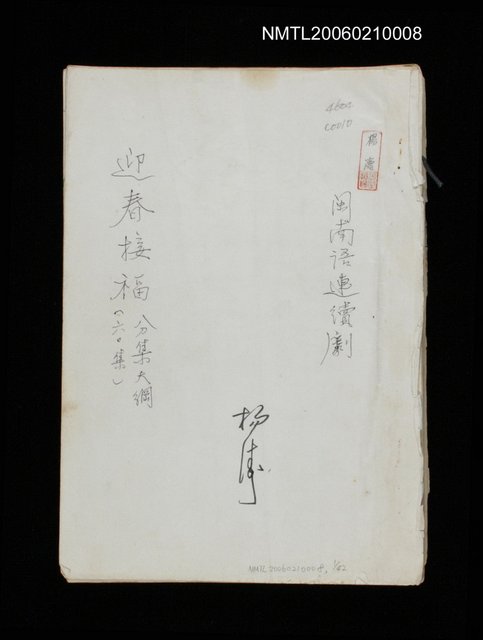 NMTL20060210008
4602
C0010
楊濤
閩南語連續劇
迎春接福 分集大綱
(六〇集)
楊濤
NMTL20060210008, 1/62